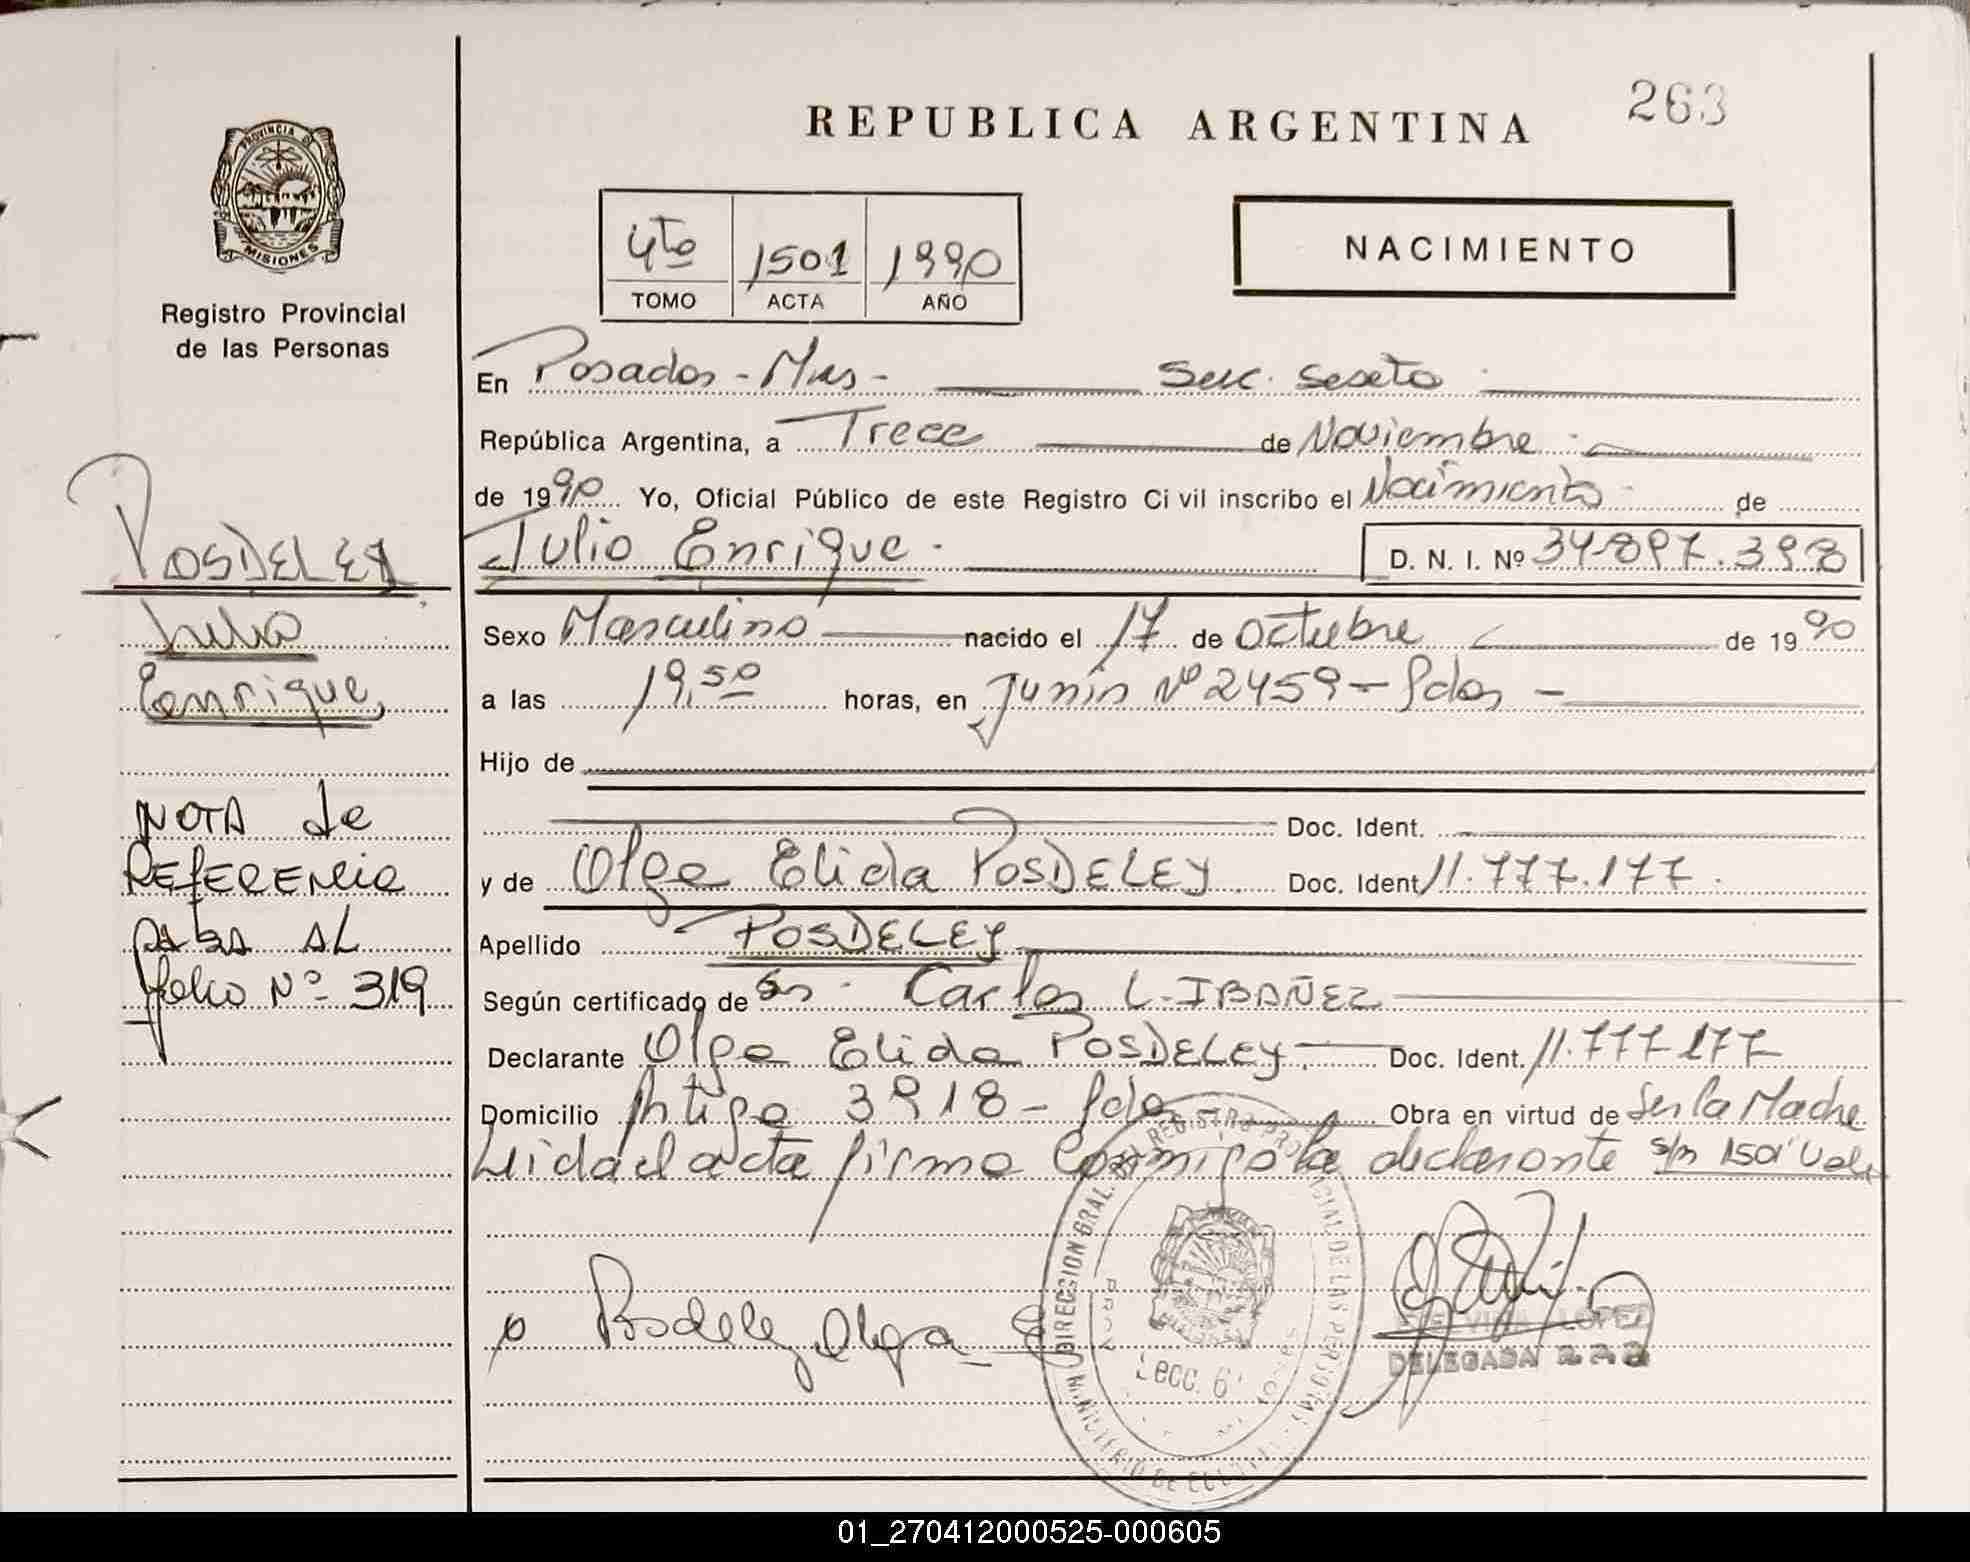 263
REPUBLICA ARGENTINA
PROVINCIA DE
MISIONES
Registro Provincial
de las Personas
4to 1501 1990
TOMO ACTA AÑO
NACIMIENTO
En Posadas - Mnes - Secc. Sexta
República Argentina, a Trece de Noviembre
de 1990 Yo, Oficial Público de este Registro Civil inscribo el Nacimiento de
Julio Enrique. D. N. I. Nº 34.897.398
Sexo Masculino nacido el 17 de Octubre de 1990
a las 19,50 horas, en Junín Nº 2459 - Pdas -
Hijo de
Doc. Ident.
y de Olga Elida POSDELEY Doc. Ident 11.777.177.
Apellido POSDELEY
Según certificado de Carlos L. IBAÑEZ
Declarante Olga Elida POSDELEY. Doc. Ident. 11.777.177
Domicilio Artiga 3918 - Pdas Obra en virtud de Ser la Madre
Leida el acta firma Conmigo la declarante s/n 1501 Vale
Posdeley Olga E
LOPEZ
DELEGADA
DIRECCION GRAL. DEL REGISTRO PROVINCIAL DE LAS PERSONAS
Secc. 6
MINISTERIO DE
POSDELEY
Julio
Enrique,
NOTA de
REfERENcia
PASA AL
folio Nº 319
01_270412000525-000605